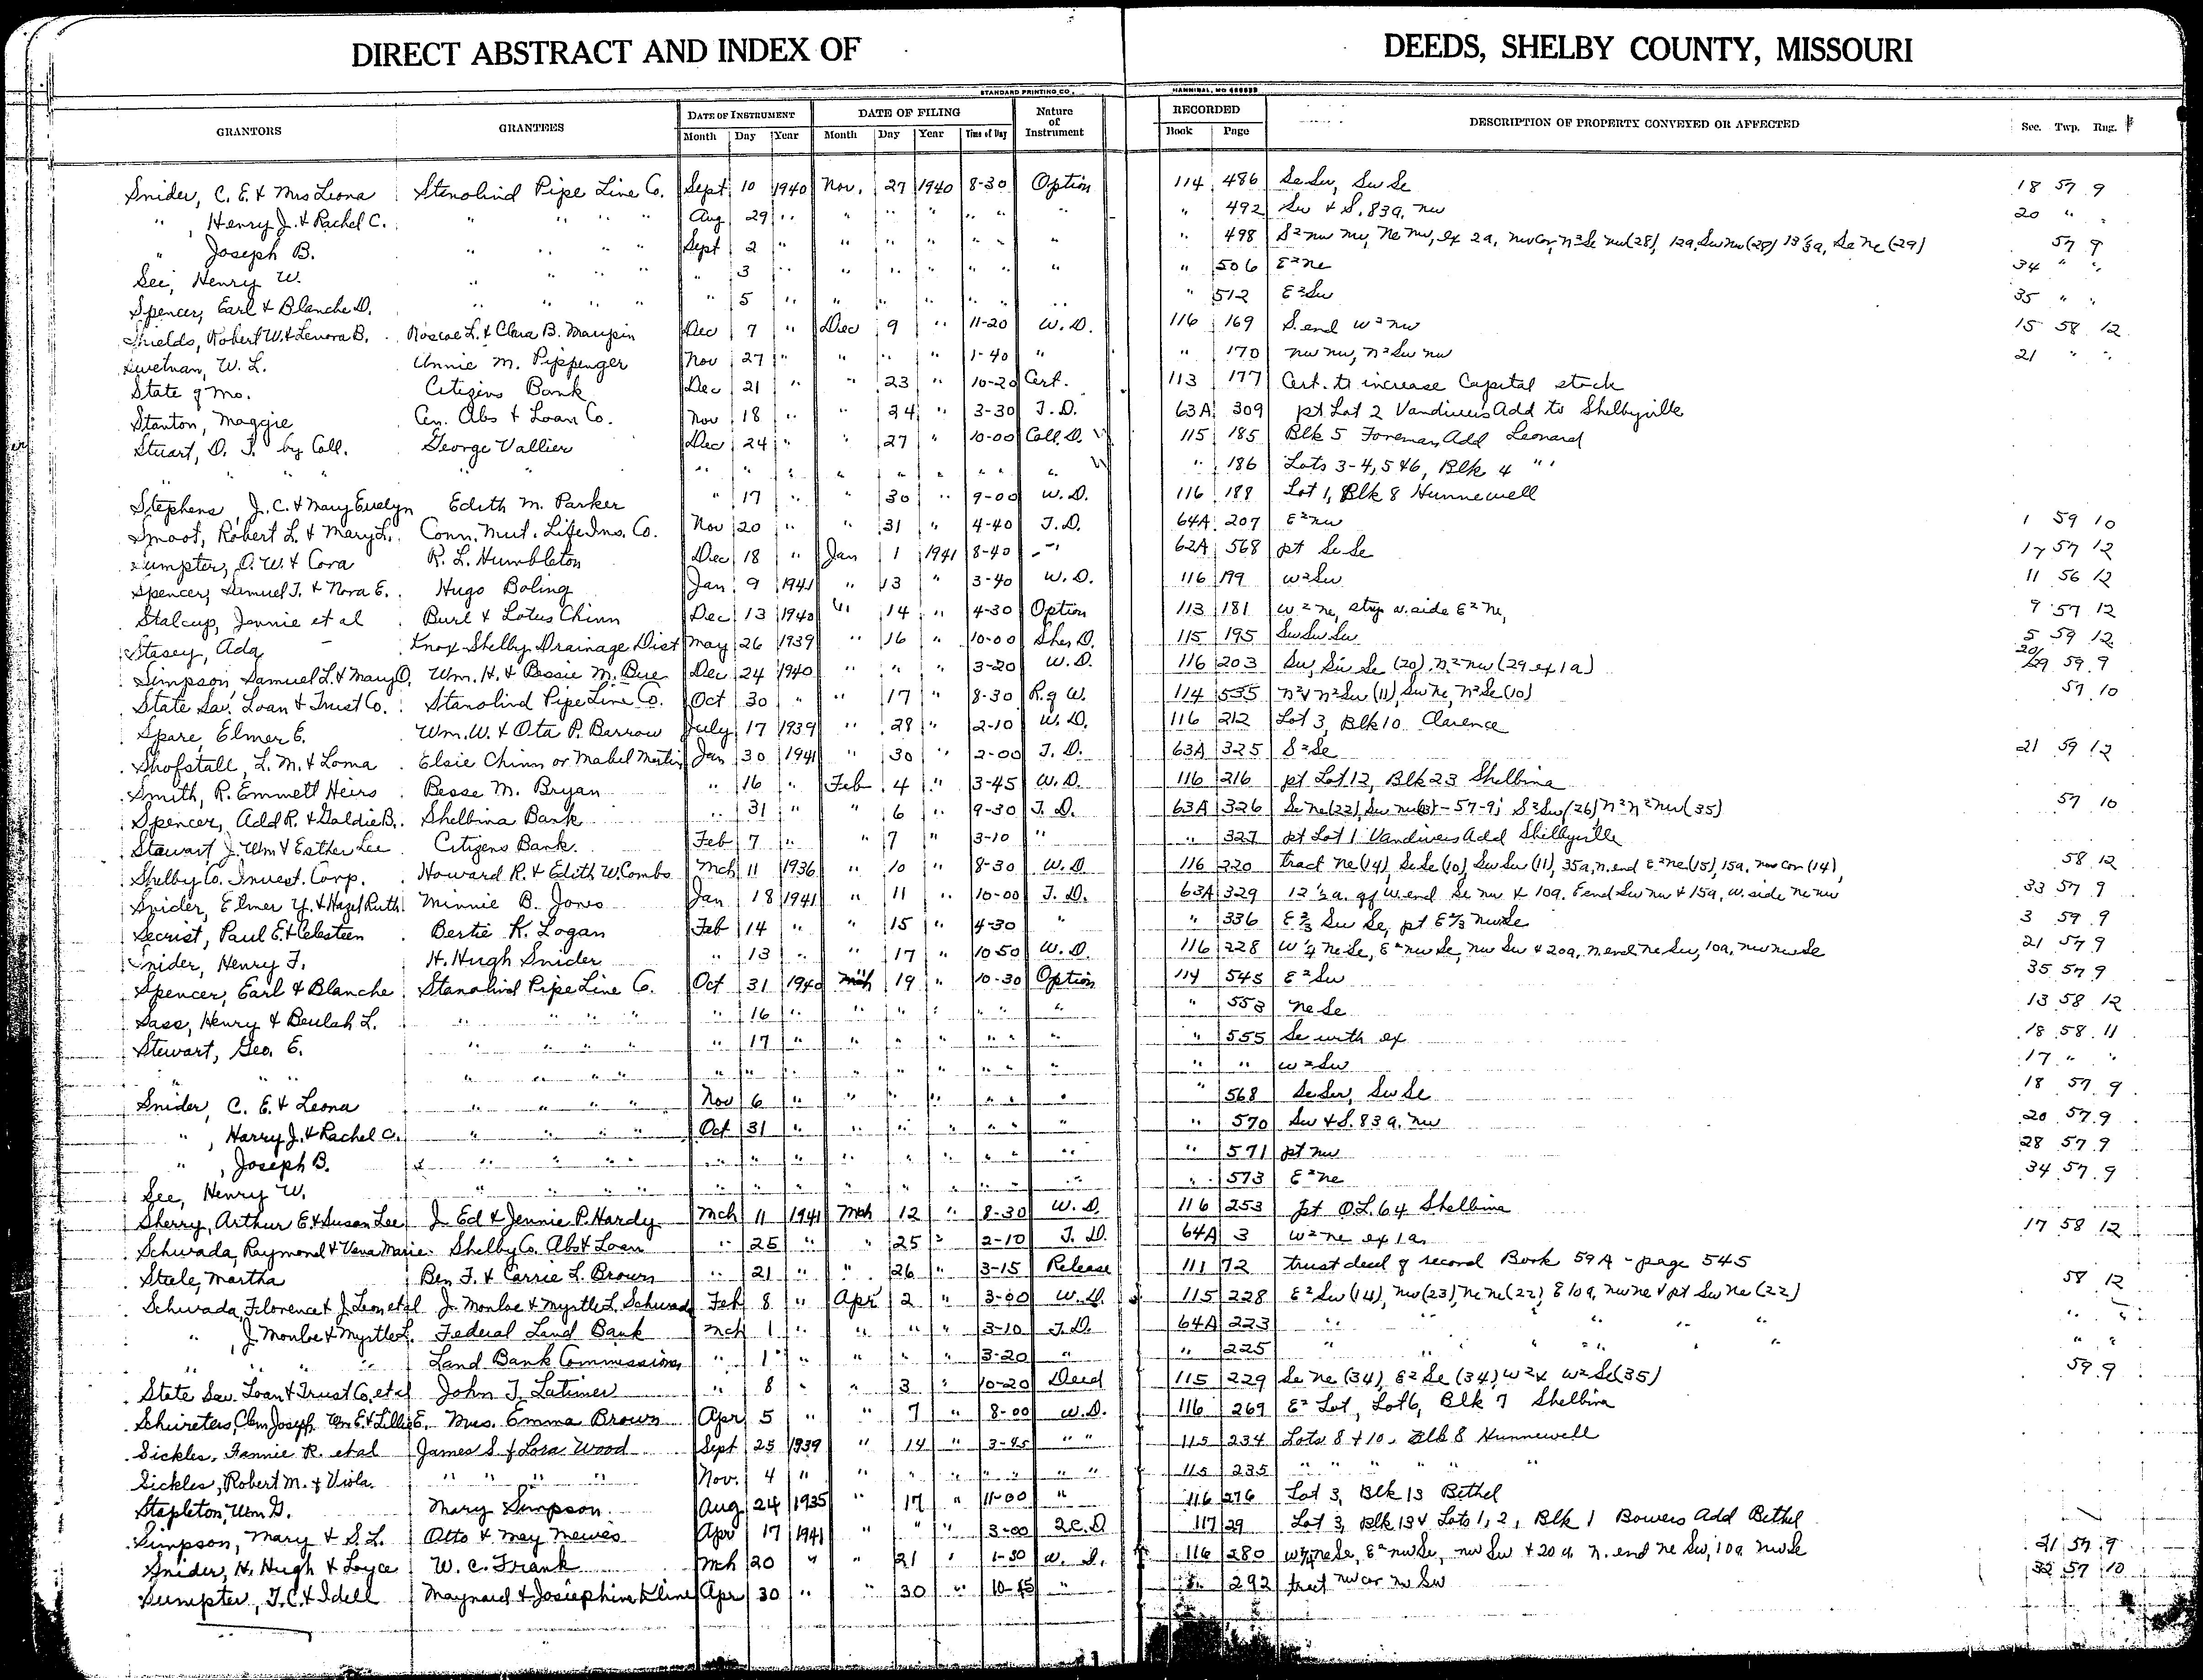 DIRECT ABSTRACT AND INDEX OF DEEDS, SHELBY COUNTY, MISSOURI
STANDARD PRINTING CO., HANNIBAL, MO
GRANTORS GRANTEES DATE OF INSTRUMENT DATE OF FILING Nature of Instrument RECORDED DESCRIPTION OF PROPERTY CONVEYED OR AFFECTED Sec. Twp. Rng.
Month Day Year Month Day Year Time of Day Book Page
Snider, C. E. & Mrs Leona Stanolind Pipe Line Co. Sept 10 1940 Nov. 27 1940 8-30 Option 114 486 Se Sw, Sw Se 18 57 9
" , Henry J. & Rachel C. " " " " Aug 29 " " " " " " " " 492 Sw & S. 83a. nw 20 " "
" Joseph B. " " " " Sept 2 " " " " " " " " 498 S² nw nw, Ne nw, ex 2a, nw cor, n² Se nw (28), 12a, Sw nw (28) 13 1/3 a, Se ne (29) 57 9
See, Henry W. " " " " " 3 " " " " " " " " 506 E² ne 34 " "
Spencer, Earl & Blanche D. " " " " " 5 " " " " " " " " 512 E² Sw 35 " "
Shields, Robert W. & Lenora B. Roscoe L. & Clara B. Maupin Dec 7 " Dec 9 " 11-20 W. D. 116 169 S. end w² nw 15 58 12
Swetnan, W. L. Annie M. Pippenger Nov 27 " " " " 1-40 " " 170 nw nw, n² Sw nw 21 " "
State of Mo. Citizens Bank Dec 21 " " 23 " 10-20 Cert. 113 177 Cert. to increase Capital stock
Stanton, Maggie Cen. Abs & Loan Co. Nov 18 " " 24 " 3-30 T. D. 63A 309 pt Lot 2 Vandivers Add to Shelbyville
Stuart, D. T. by Coll. George Vallier Dec 24 " " 27 " 10-00 Coll. D. 115 185 Blk 5 Foreman Add Leonard
" " " " " " " " " " " " " " 186 Lots 3-4, 5 & 6, Blk 4 " "
Stephens, J. C. & Mary Evelyn Edith M. Parker " 17 " " 30 " 9-00 W. D. 116 188 Lot 1, Blk 8 Hunnewell
Smoot, Robert L. & Mary L. Conn. Mut. Life Ins. Co. Nov 20 " " 31 " 4-40 T. D. 64A 207 E² nw 1 59 10
Sumpter, O. W. & Cora R. L. Humbleton Dec 18 " Jan 1 1941 8-40 " 62A 568 pt Se Se 17 57 12
Spencer, Samuel T. & Nora E. Hugo Boling Jan 9 1941 " 13 " 3-40 W. D. 116 199 w² Sw 11 56 12
Stalcup, Jennie et al Burl & Lotus Chinn Dec 13 1940 " 14 " 4-30 Option 113 181 w² ne, strip w. side E² ne, 9 57 12
Stasey, Ada Knox Shelby Drainage Dist May 26 1939 " 16 " 10-00 Sher D. 115 195 Sw Sw Sw 5 59 12
Simpson, Samuel L. & Mary O. Wm. H. & Bessie M. Bue Dec 24 1940 " " " 3-20 W. D. 116 203 Sw, Sw Se (20), n² nw (29 ex 1a) 20/29 59 9
State Sav. Loan & Trust Co. Stanolind Pipe Line Co. Oct 30 " " 17 " 8-30 R. of W. 114 535 n² & n² Sw (11), Sw ne, n² Se (10) 57 10
Spare, Elmer E. Wm. W. & Ota P. Barrow July 17 1939 " 28 " 2-10 W. D. 116 212 Lot 3, Blk 10 Clarence
Shofstall, L. M. & Loma Elsie Chinn or Mabel Martin Jan 30 1941 " 30 " 2-00 T. D. 63A 325 S² Se 21 59 12
Smith, R. Emmett Heirs Besse M. Bryan " 16 " Feb 4 " 3-45 W. D. 116 216 pt Lot 12, Blk 23 Shelbina
Spencer, Add R. & Goldie B. Shelbina Bank " 31 " " 6 " 9-30 T. D. 63A 326 Se ne (22), Sw nw - 57-9; S² Sw (26) n² n² nw (35) 57 10
Stewart J. Wm & Esther Lee Citizens Bank. Feb 7 " " 7 " 3-10 " " 327 pt Lot 1 Vandivers Add Shelbyville
Shelby Co. Invest. Corp. Howard R. & Edith W. Combs Mch 11 1936 " 10 " 8-30 W. D. 116 220 tract ne (14), Se Se (10), Sw Sw (11), 35a, n. end E² ne (15), 15a. nw cor (14), 58 12
Snider, Elmer Y. & Hazel Ruth Minnie B. Jones Jan 18 1941 " 11 " 10-00 T. D. 63A 329 12 ½ a. off w. end Se nw & 10a. E end Sw nw & 15a, w. side ne nw 33 57 9
Secrist, Paul E. & Celesteen Bertie K. Logan Feb 14 " " 15 " 4-30 " " 336 E ⅔ Sw Se, pt E ⅔ nw Se 3 59 9
Snider, Henry F. H. Hugh Snider " 13 " " 17 " 10-50 W. D. 116 228 W ¼ ne Se, E² nw Se, nw Sw & 20a, n. end ne Sw, 10a, nw nw Se 21 57 9
Spencer, Earl & Blanche Stanolind Pipe Line Co. Oct 31 1940 Mch 19 " 10-30 Option 114 545 E² Sw 35 57 9
Sass, Henry & Beulah L. " " " " " 16 " " " " " " " " 553 ne Se 13 58 12
Stewart, Geo. E. " " " " " 17 " " " " " " " " 555 Se with ex 18 58 11
" " " " " " " " " " " " " " " " " w² Sw 17 " "
Snider, C. E. & Leona " " " " Nov 6 " " " " " " " " 568 Se Sw, Sw Se 18 57 9
" , Harry J. & Rachel C. " " " " Oct 31 " " " " " " " " 570 Sw & S. 83 a. nw 20 57 9
" , Joseph B. " " " " " " " " " " " " " " 571 pt nw 28 57 9
See, Henry W. " " " " " " " " " " " " " " 573 E² ne 34 57 9
Sherry, Arthur E. & Susan Lee J. Ed & Jennie P. Hardy Mch 11 1941 Mch 12 " 8-30 W. D. 116 253 pt O.L. 64 Shelbina
Schwada, Raymond & Vena Marie Shelby Co. Abst & Loan " 25 " " 25 " 2-10 T. D. 64A 3 w² ne ex 1a 17 58 12
Steele, Martha Ben F. & Carrie L. Brown " 21 " " 26 " 3-15 Release 111 72 trust deed of record Book 59A - page 545
Schwada, Florence & J. Leon et al J. Monroe & Myrtle L. Schwada Feb 8 " Apr 2 " 3-00 W. D. 115 228 E² Sw (14), nw (23), ne ne (22), E 10a, nw ne & pt Sw ne (22) 58 12
" , J. Monroe & Myrtle L. Federal Land Bank Mch 1 " " " " 3-10 T. D. 64A 223 " " " " " "
" " " " Land Bank Commissions " 1 " " " " 3-20 " " 225 " " " " " "
State Sav. Loan & Trust Co. et al John T. Latimer " 8 " " 3 " 10-20 Deed 115 229 Se ne (34), E² Se (34), w² & w² Se (35) 59 9
Schureters, Clem Joseph Wm E. & Lillie E. Mrs. Emma Brown Apr 5 " " 7 " 8-00 W. D. 116 269 E² Lot, Lot 6, Blk 7 Shelbina
Sickles, Fannie R. et al James S. & Lora Wood Sept 25 1939 " 14 " 3-45 " " 115 234 Lots 8 & 10. Blk 8 Hunnewell
Sickles, Robert M. & Viola. " " " " Nov. 4 " " " " " " " " 115 235 " " " " "
Stapleton, Wm G. Mary Simpson Aug 24 1935 " 17 " 11-00 " 116 276 Lot 3, Blk 13 Bethel
Simpson, Mary & S. L. Otto & May Mewes Apr 17 1941 " " " 3-00 Q.C.D 117 29 Lot 3, Blk 13 & Lots 1, 2, Blk 1 Bowers Add Bethel
Snider, H. Hugh & Loyce W. C. Frank Mch 20 " " 21 " 1-30 W. D. 116 280 w ¼ ne Se, E² nw Se, nw Sw & 20 a. n. end ne Sw, 10a nw Se 21 57 9
Sumpter, T. C. & Idell Maynard & Josephine Kline Apr 30 " " 30 " 10-45 " " 292 tract nw cor nw Sw 32 57 10